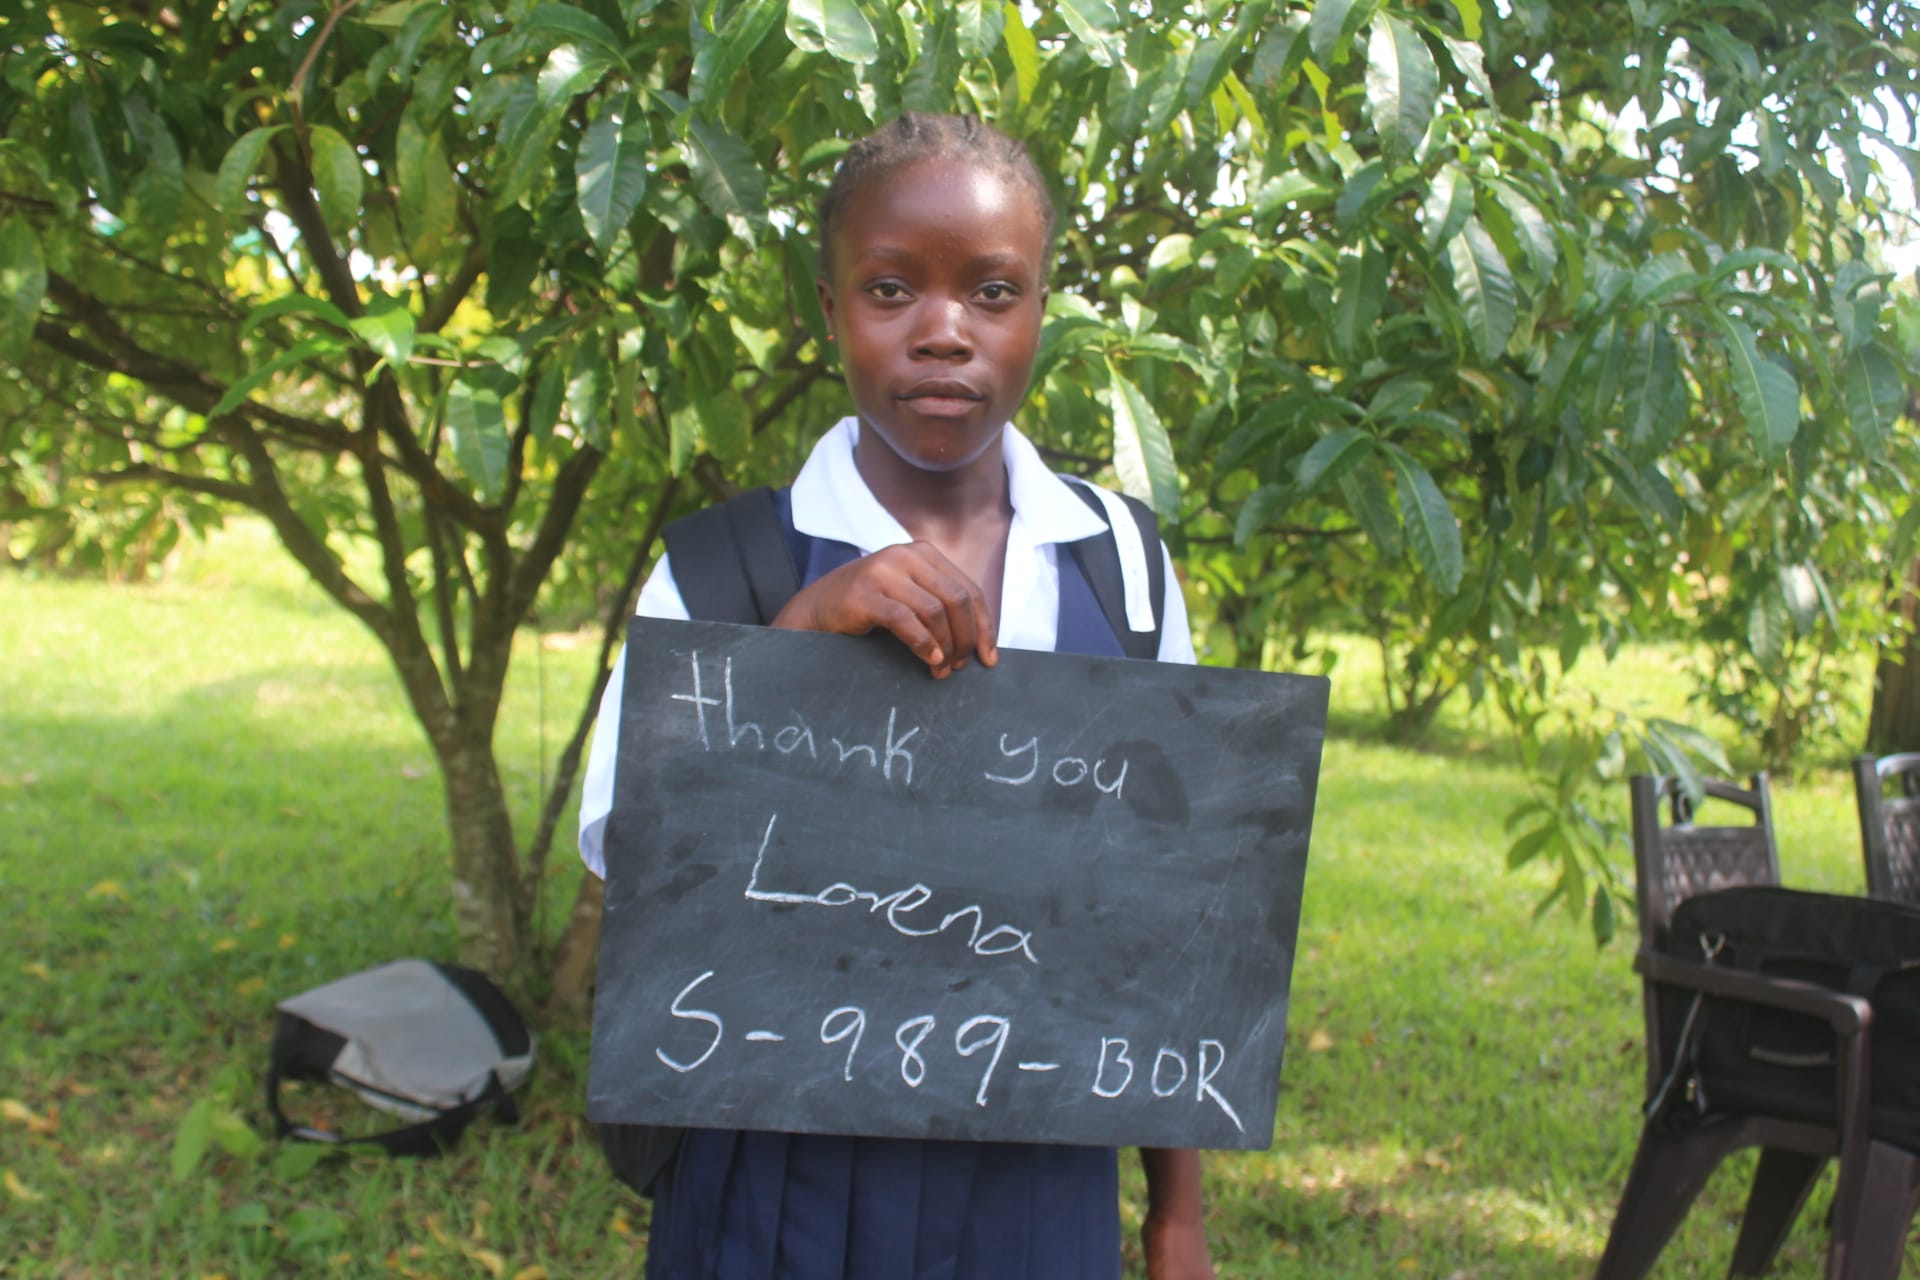 thank you
Lorena
S-989-BOR